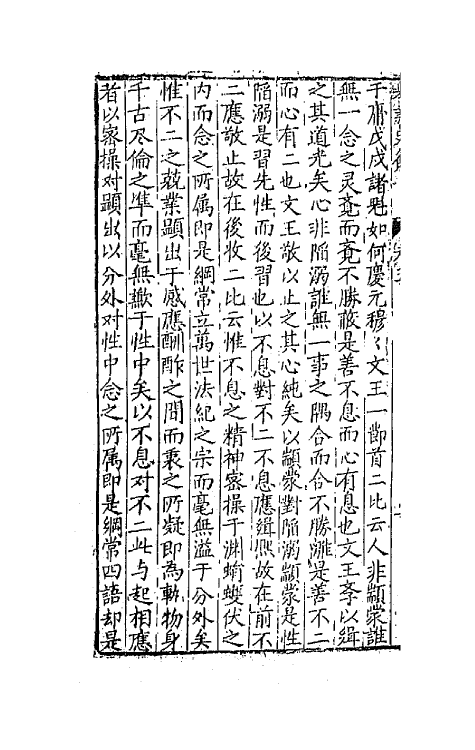 于腑戊戌諸魁如何慶元穆〻文王一節首二比云人非顓蒙誰
無一念之灵竟而竟不勝蔽是善不息而心有息也文王孝以緝
之其道光矣心非陷溺誰無一事之隅合而合不勝離是善不二
而心有二也文王敬以止之其心純矣以顓蒙對陷溺顓蒙是性
陷溺是習先性而後習也以不息對不二不息應緝熙故在前不
二應敬止故在後收二比云惟不息之精神密操于渊蜵蠖伏之
内而念之所属即是綱常立萬世法紀之宗而毫無溢于分外矣
惟不二之兢業顕出于感應酬酢之間而衷之所凝即為動物身
千古尽倫之凖而毫無歉于性中矣以不息对不二此与起相應
者以密操对顕出以分外对性中念之所属即是綱常四語却是